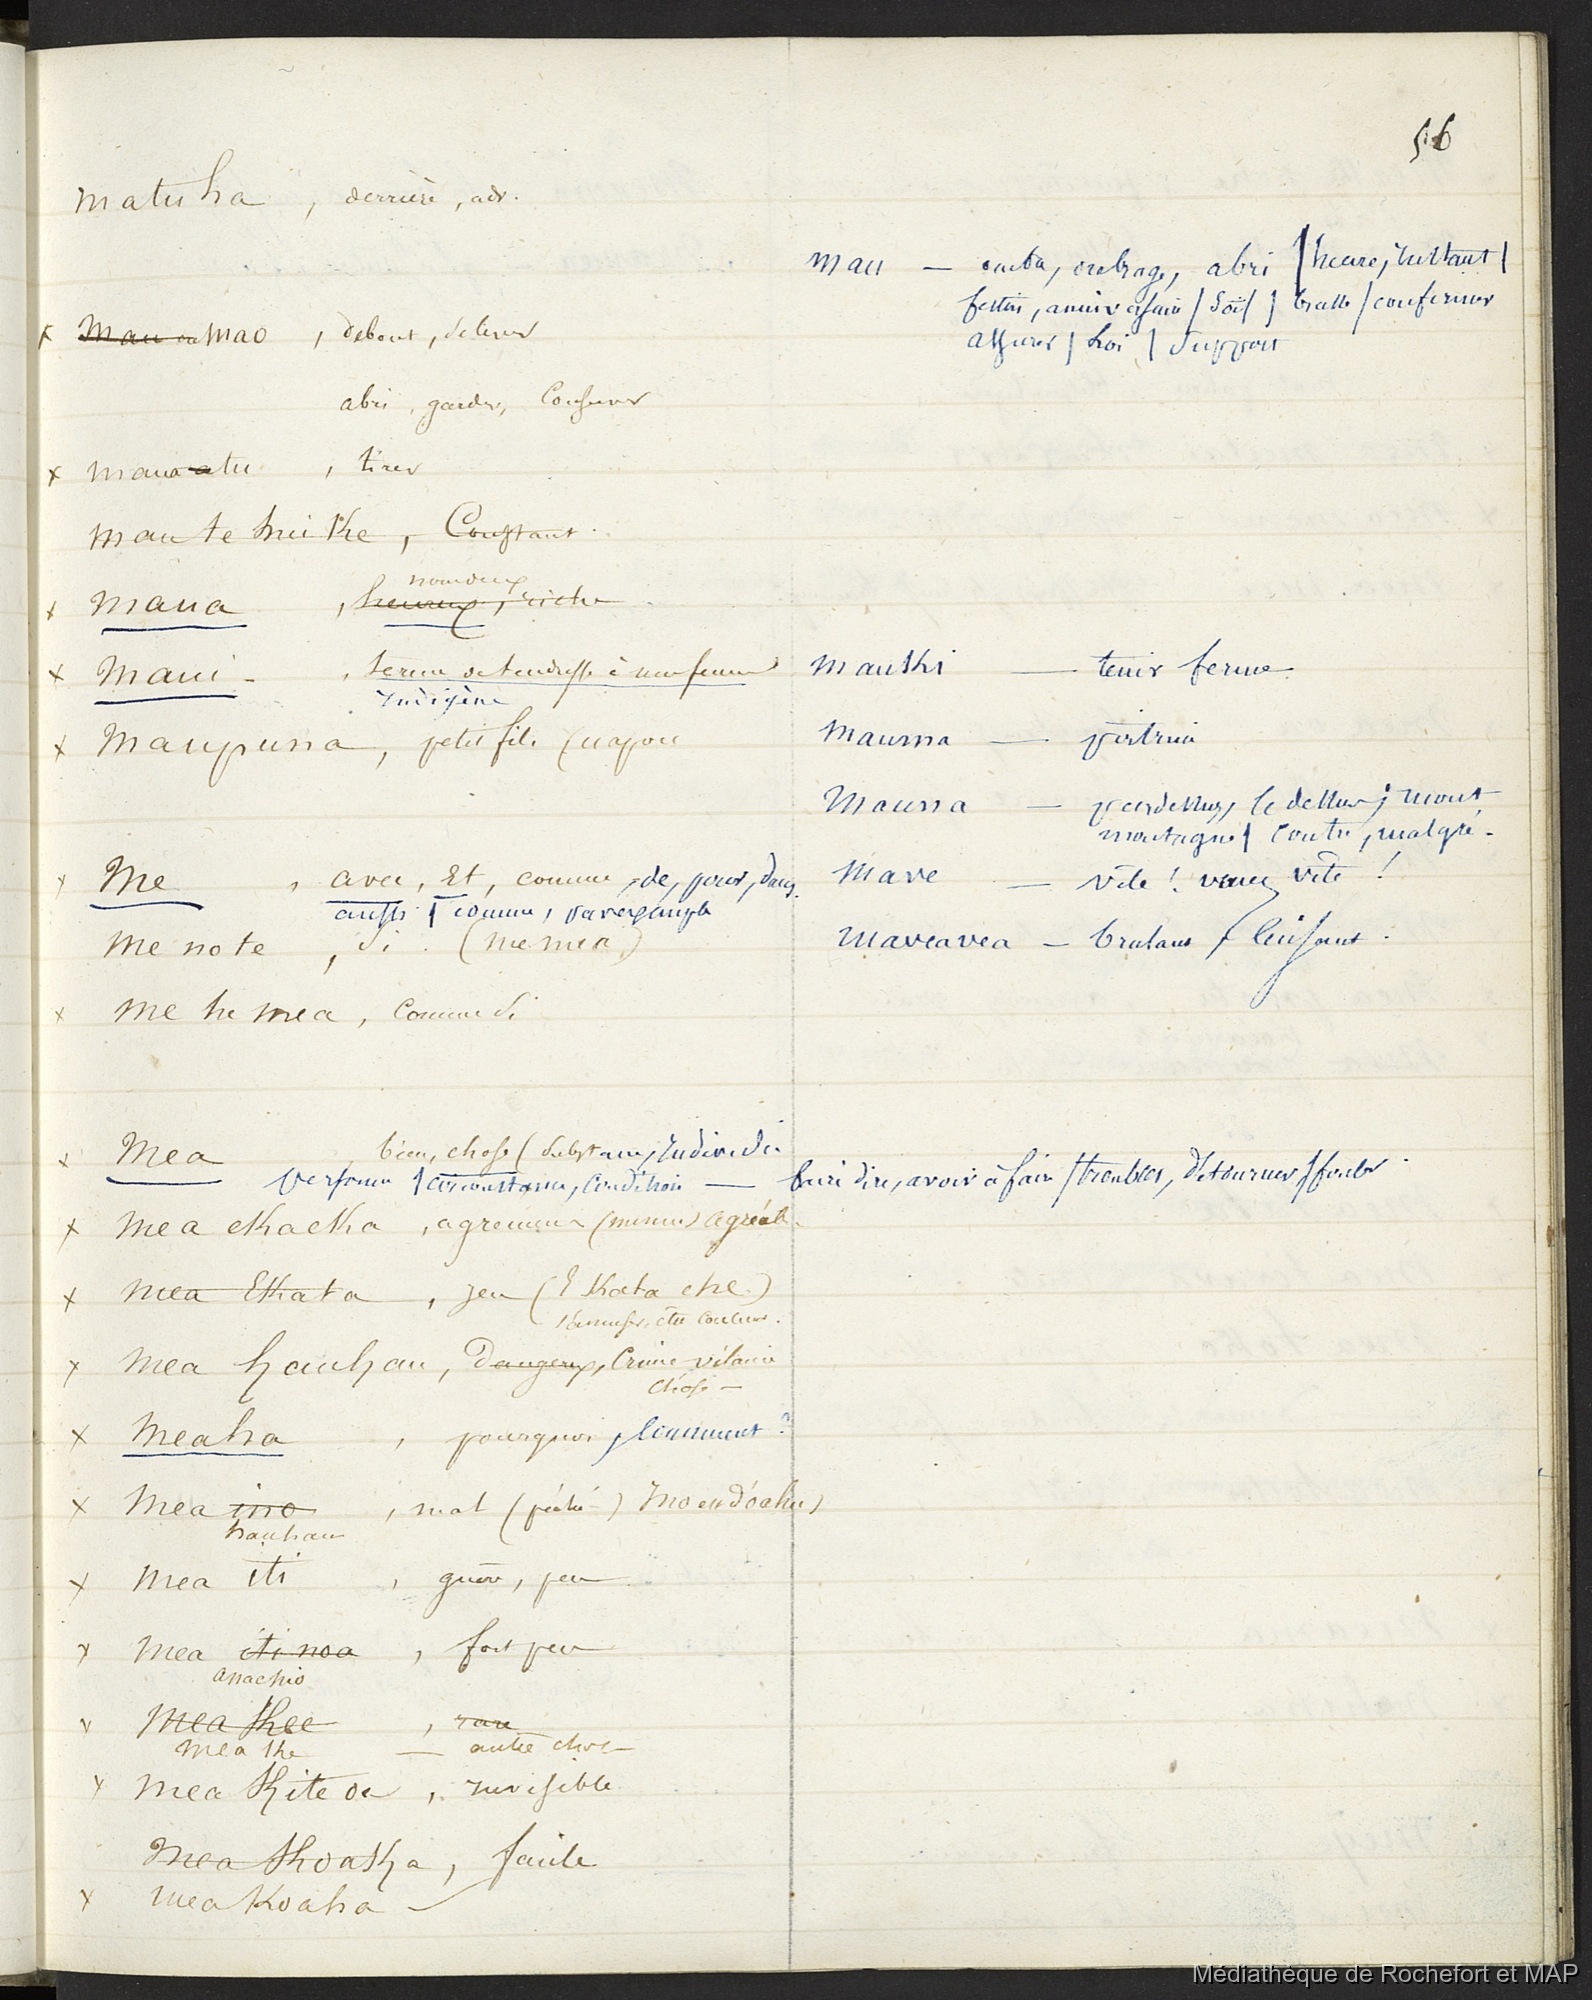 56
matuha, derrière, adv.
mau — ombre, ombrage, abri | heure, instant |
festin, anniversaire | soif | tralle | confirmer
assurer | loi | support
x mau ou mao, debout, se lever
abri, garder, conserver
x maua atu, tirer
mau te hui ke, Constant.
nombreux
x maua, heureux, riche
x Maui -, terme de tendresse à une femme
Indigène
mauthi — tenir ferme.
x Maupuna, petit fils (uapou
Mauma — poitrine
Mauna — pardessus, le dessus, mont
montagne | contre, malgré -
x Me, avec, Et, comme, de, pour, dans.
aussi | comme, par exemple
Mave — vite ! venez vite !
Me note, Si. (me mea)
Maveavea — brulant / luisant.
x me he mea, comme si
x Mea, bien, chose (substance, Individu
personne | circonstance, condition — faire dire, avoir à faire / troubler, détourner /
x mea ekaeka, agrément (menue) agréab.
x mea Ekata, jeu (Ekata eke)
s'amuser, être couleur.
x mea hauhau, Dangereux, Crime vilaine
chose —
x Meaha, pourquoi, comment ?
x Mea ino, mal (péché) Ino en d'oahu)
hauhau
x mea iti, guère, peu
x mea iti noa, fort peu
anaehio
x mea Khee, rare
mea Khe — autre chose
x mea Kite oe, invisible
mea Khoakha, facile
x mea Koaha —
Médiathèque de Rochefort et MAP